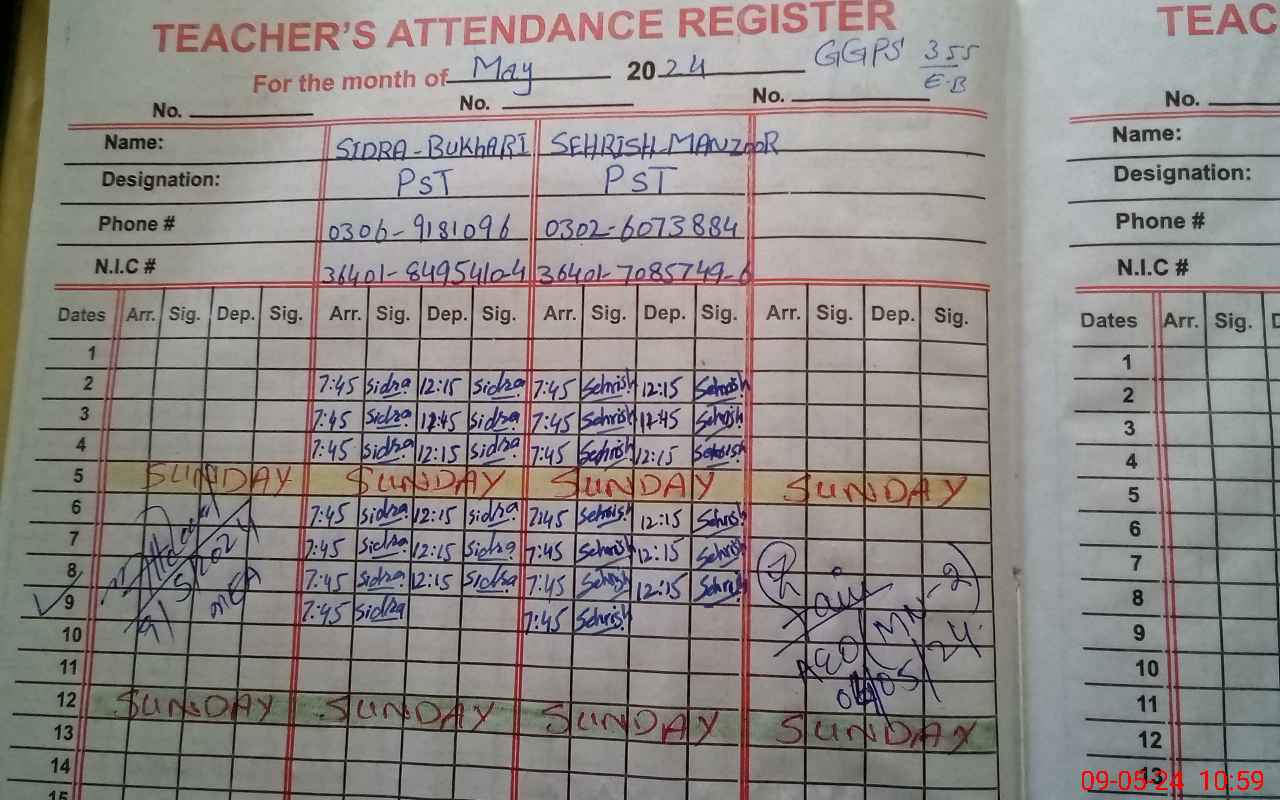 TEACHER'S ATTENDANCE REGISTER
TEAC
For the month of May 2024 GGPS 355
E-B
No. No. No. No.
Name: SIDRA-BUKHARI SEHRISH-MANZOOR Name:
Designation: PST PST Designation:
Phone # 0306-9181096 0302-6073884 Phone #
N.I.C # 36401-8495410-4 36401-7085749-6 N.I.C #
Dates Arr. Sig. Dep. Sig. Arr. Sig. Dep. Sig. Arr. Sig. Dep. Sig. Arr. Sig. Dep. Sig. Dates Arr. Sig. D
1 1
2 7:45 Sidra 12:15 Sidra 7:45 Sehrish 12:15 Sehrish 2
3 7:45 Sidra 12:45 Sidra 7:45 Sehrish 12:45 Sehrish 3
4 7:45 Sidra 12:15 Sidra 7:45 Sehrish 12:15 Sehrish 4
5 SUNDAY SUNDAY SUNDAY SUNDAY 5
6 7:45 Sidra 12:15 Sidra 7:45 Sehrish 12:15 Sehrish 6
7 7:45 Sidra 12:15 Sidra 7:45 Sehrish 12:15 Sehrish 7
8 7:45 Sidra 12:15 Sidra 7:45 Sehrish 12:15 Sehrish 8
9 7:45 Sidra 7:45 Sehrish 9
9/5/2024
MEA
AEO (MN-2)
10 10
11 11
12 SUNDAY SUNDAY SUNDAY SUNDAY 12
13 13
14
15
09-05-24 10:59